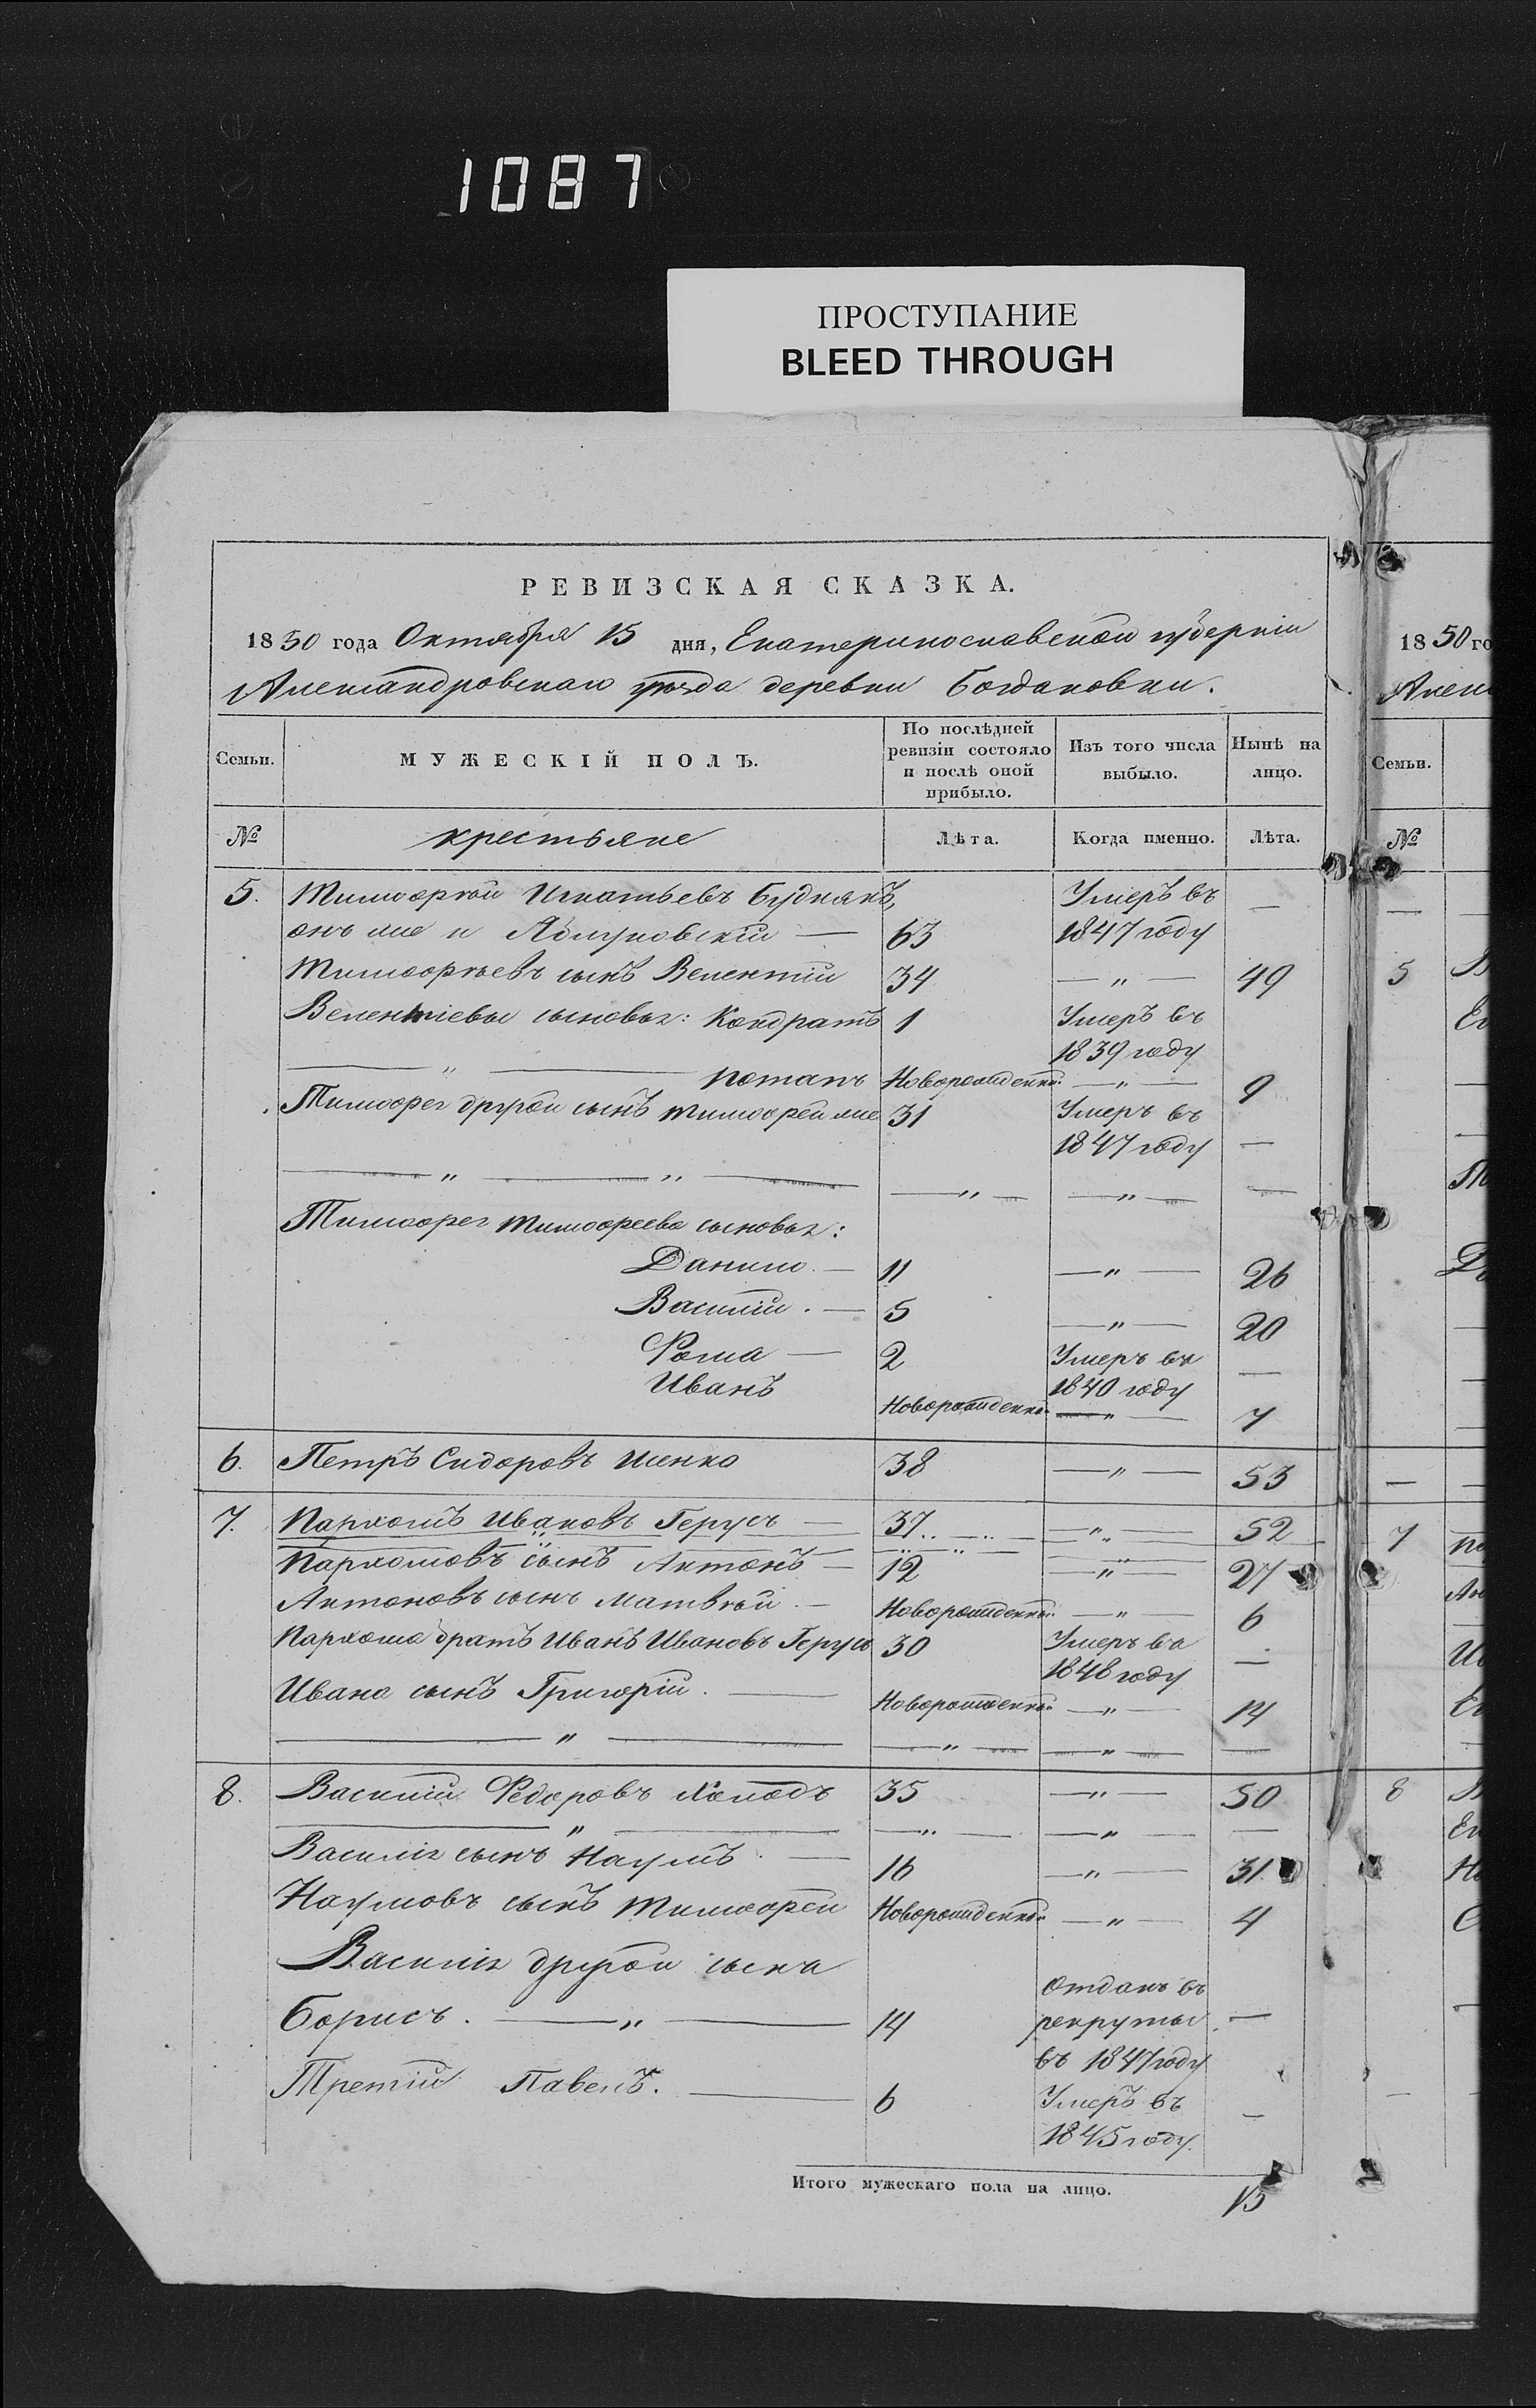 1087
ПРОСТУПАНИЕ
BLEED THROUGH
РЕВИЗСКАЯ СКАЗКА.
1850 года Октября 15 дня, Екатеринославской губерніи
Александровскаго уѣзда деревни Богдановки.
Семьи. МУЖЕСКІЙ ПОЛЪ. По послѣдней ревизіи состояло и послѣ оной прибыло. Изъ того числа выбыло. Нынѣ на лицо.
№ крестьяне Лѣта. Когда именно. Лѣта.
5. Тимофѣй Игнатьевъ Буднякъ, Умеръ въ —
онъ же и — 63 1847 году
Тимофѣевъ сынъ Велентій 34 — " — 49
Велентіевы сыновья: Кондратъ 1 Умеръ въ
1839 году
— " — Потапъ Новорожденный — " — 9
Тимофея другой сынъ Тимофей же 31 Умеръ въ
1847 году —
— " — " — — " — — " — —
Тимофея Тимофеева сыновья:
Данило — 11 — " — 26
Василій . — 5 — " — 20
Фома — 2 Умеръ въ —
Иванъ 1840 году
Новорожденный — " — 7
6. Петръ Сидоровъ 38 — " — 53
7. Пархомъ Ивановъ Герусъ — 37 — " — 52
Пархомовъ сынъ Антонъ — 12 — " — 27
Антоновъ сынъ Матвѣй — Новорожденный — " — 6
Пархома братъ Иванъ Ивановъ Герусъ 30 Умеръ въ
1848 году —
Ивана сынъ Григорій — Новорожденный — " — 14
— " — — " — — " — —
8. Василій Федоровъ Холодъ 35 — " — 50
— " — — " — — " — —
Василія сынъ Наумъ — 16 — " — 31
Наумовъ сынъ Тимофей Новорожденный — " — 4
Василія другой сынъ
Отданъ въ
Борисъ. — " — 14 рекруты —
въ 1847 году
Третій Павелъ. — 6 Умеръ въ —
1845 году.
Итого мужескаго пола на лицо. 15
1850 го
Алек
Семьи.
№
5
7
8